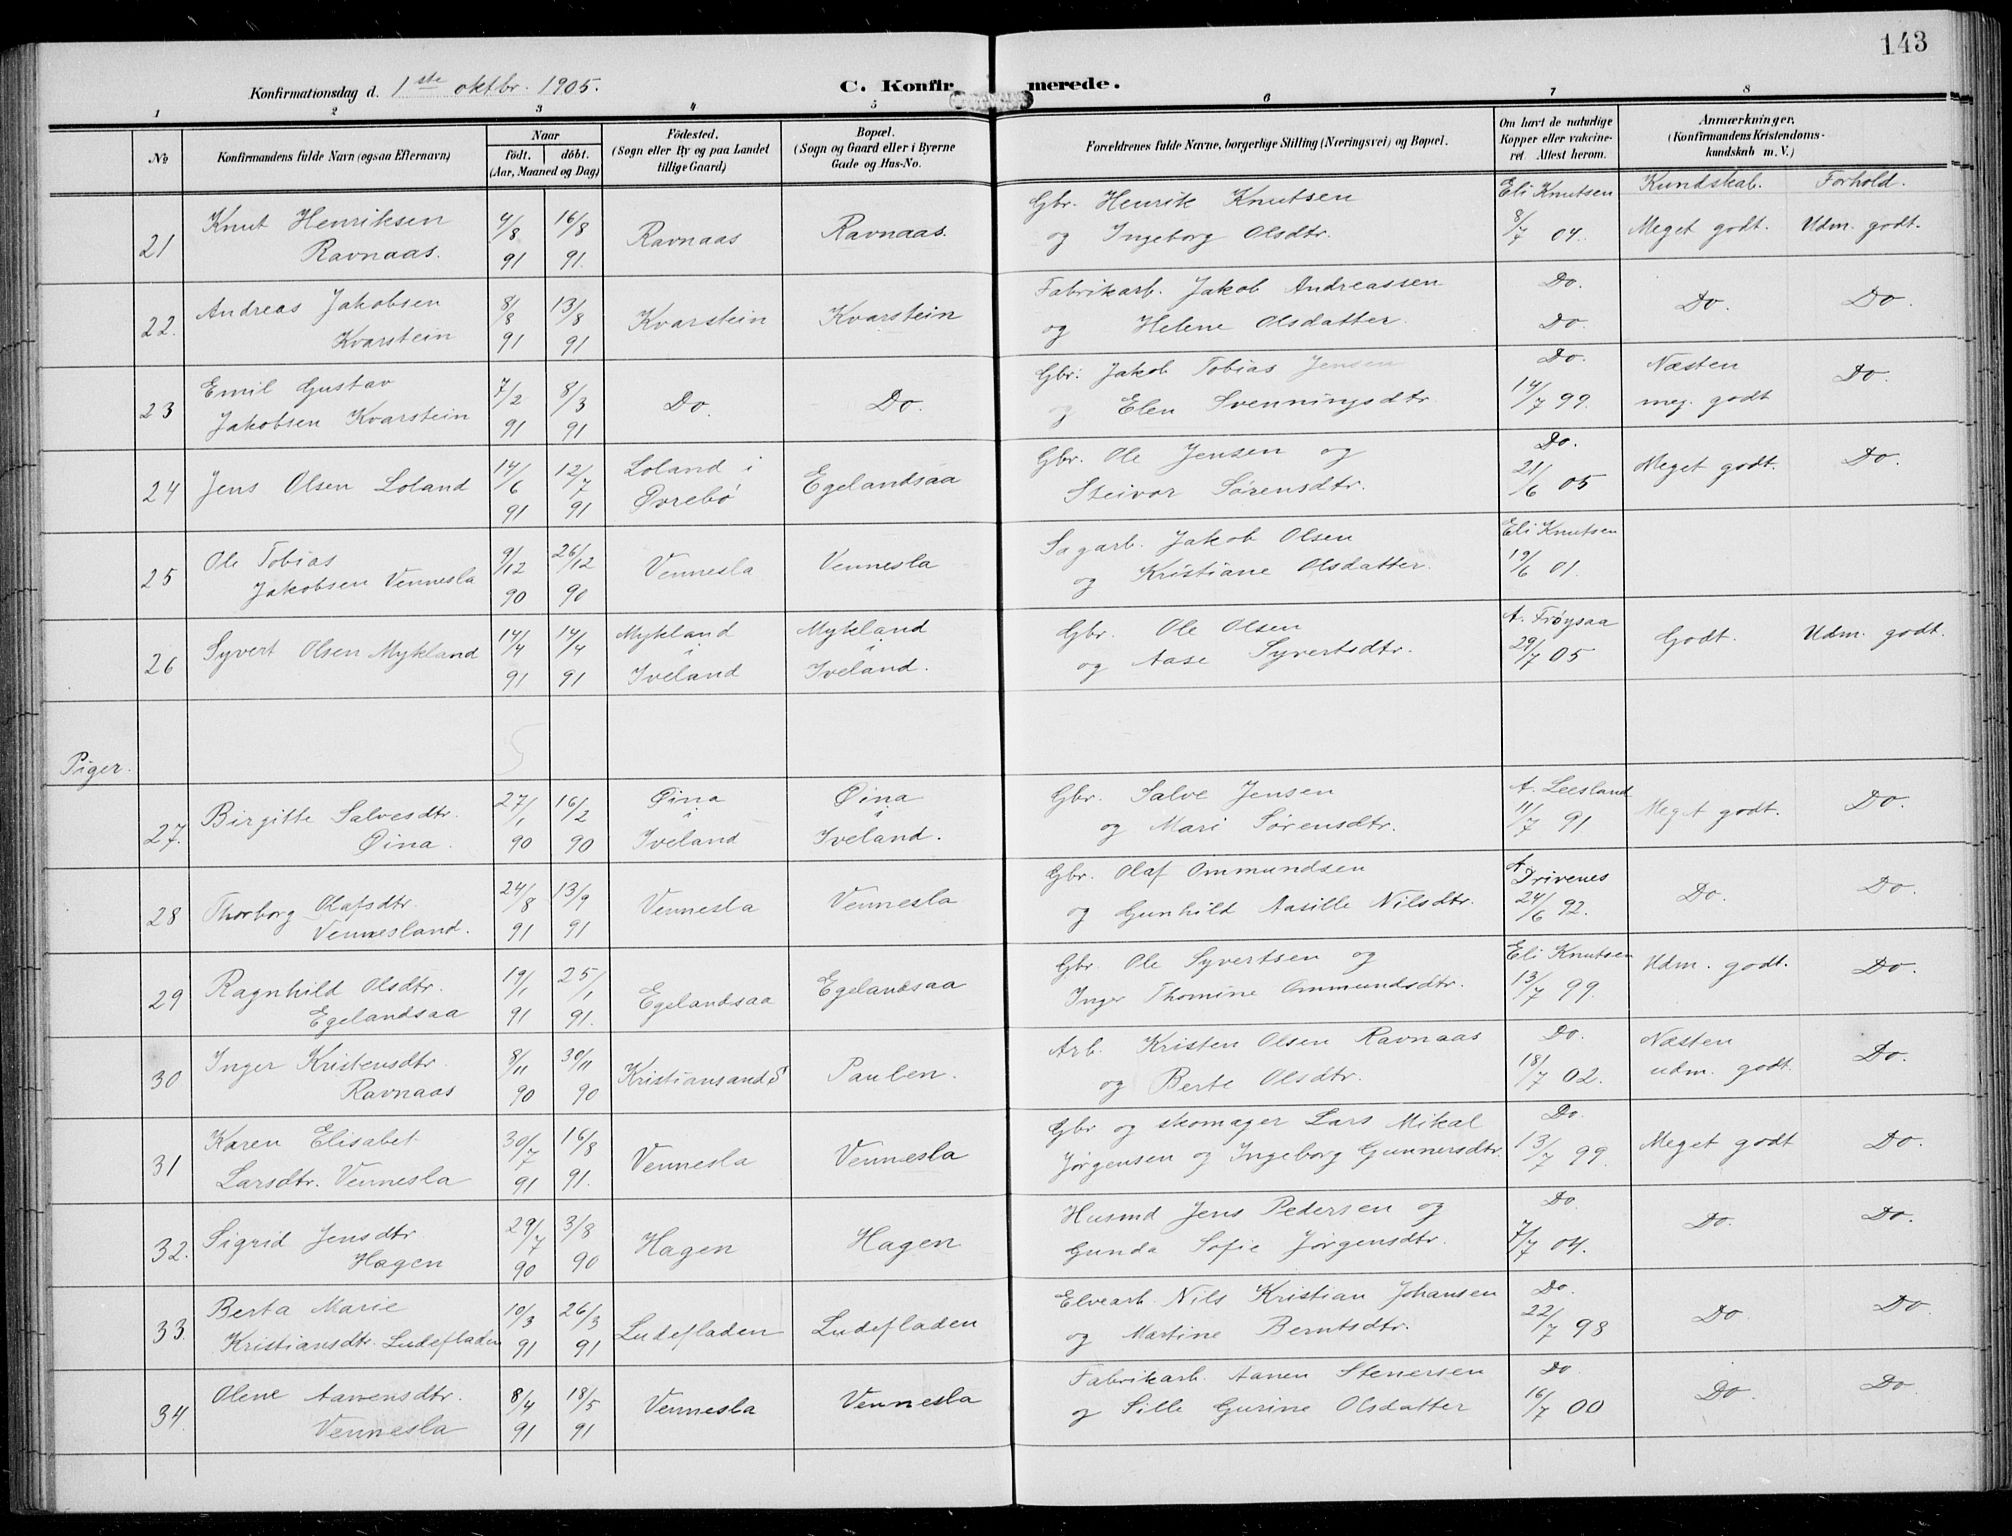 143
Konfirmationsdag d. 1ste oktbr. 1905.
C. Konfirmerede.
1 2 3 4 5 6 7 8
No
Konfirmandens fulde Navn (ogsaa Efternavn)
Naar
født. døbt.
(Aar, Maaned og Dag)
Födested.
(Sogn eller By og paa Landet
tillige Gaard)
Bopæl.
(Sogn og Gaard eller i Byerne
Gade og Hus-No.
Forældrenes fulde Navne, borgerlige Stilling (Næringsvei) og Bopæl.
Om havt de naturlige
Kopper eller vakcine-
ret. Attest herom.
Anmærkninger.
(Konfirmandens Kristendoms-
kundskab m. V.)
Kundskab. Forhold.
21 Knut Henriksen Ravnaas. 4/8 91 16/8 91. Ravnaas Ravnaas. Gbr. Henrik Knutsen og Ingeborg Olsdtr. Eli Knutsen 8/7 04. Meget godt. Udm. godt.
22. Andreas Jakobsen Kvarstein 8/8 91 13/8 91 Kvarstein Kvarstein Fabrikarb. Jakob Andreassen og Helene Olsdatter. Do. Do. Do. Do.
23 Emil Gustav Jakobsen Kvarstein 7/2 91 8/3 91 Do. Do. Gbr. Jakob Tobias Jensen og Elen Svenningsdtr Do. 14/7 99. Næsten meg. godt Do.
24 Jens Olsen Loland 14/6 91 12/7 91 Loland i Øvrebø Egelandsaa Gbr. Ole Jensen og Steivor Sørensdtr. Do. 21/6 05 Meget godt. Do.
25 Ole Tobias Jakobsen Vennesla 9/12 90 26/12 90 Vennesla Vennesla Sagarb. Jakob Olsen og Kristiane Olsdatter. Eli Knutsen 19/6 01.
26 Syvert Olsen Mykland 14/4 91 14/4 91 Mykland i Iveland Mykland i Iveland. Gbr. Ole Olsen og Aase Syvertsdtr. A. Frøysaa 29/7 05 Godt. Udm. godt.
Piger.
27. Birgitte Salvesdtr. Øina. 27/1 90 16/2 90 Øina i Iveland Øina i Iveland. Gbr. Salve Jensen og Mari Sørensdtr. A. Leesland 11/7 91 Meget godt. Do.
28 Thorborg Olafsdtr. Vennesland. 24/8 91 13/9 91 Vennesla Vennesla Gbr. Olaf Ommundsen og Gunhild Aasille Nilsdtr. A. Drivenes 24/6 92. Do. Do.
29 Ragnhild Olsdtr. Egelandsaa 19/1 91 25/1 91. Egelandsaa Egelandsaa Gbr. Ole Syvertsen og Inger Thomine Ommundsdtr. Eli Knutsen 13/7 99. Udm. godt. Do.
30 Inger Kristensdtr. Ravnaas 8/11 90 30/11 90 Kristiansand S Paulen. Arb. Kristen Olsen Ravnaas og Berte Olsdtr. Do. 18/7 02. Næsten udm. godt. Do.
31 Karen Elisabet Larsdtr. Vennesla 30/7 91 16/8 91. Vennesla Vennesla Gbr og skomager Lars Mikal Jørgensen og Ingeborg Gunnersdtr. Do. 13/7 99. Meget godt Do.
32. Sigrid Jensdtr. Hagen 29/7 90 3/8 90 Hagen Hagen Husmd Jens Pedersen og Gunda Sofie Jørgensdtr. Do. 7/7 04. Do. Do.
33. Berta Marie Kristiansdtr. Ludefladen 10/3 91 26/3 91 Ludefladen Ludefladen Elvearb. Nils Kristian Johansen og Martine Berntsdtr. Do. 22/7 98 Do Do.
34. Olene Aanensdtr. Vennesla 8/4 91 18/5 91 Vennesla Vennesla Fabrikarb. Aanen Stenersen og Sille Gurine Olsdatter Do 16/7 00 Do. Do